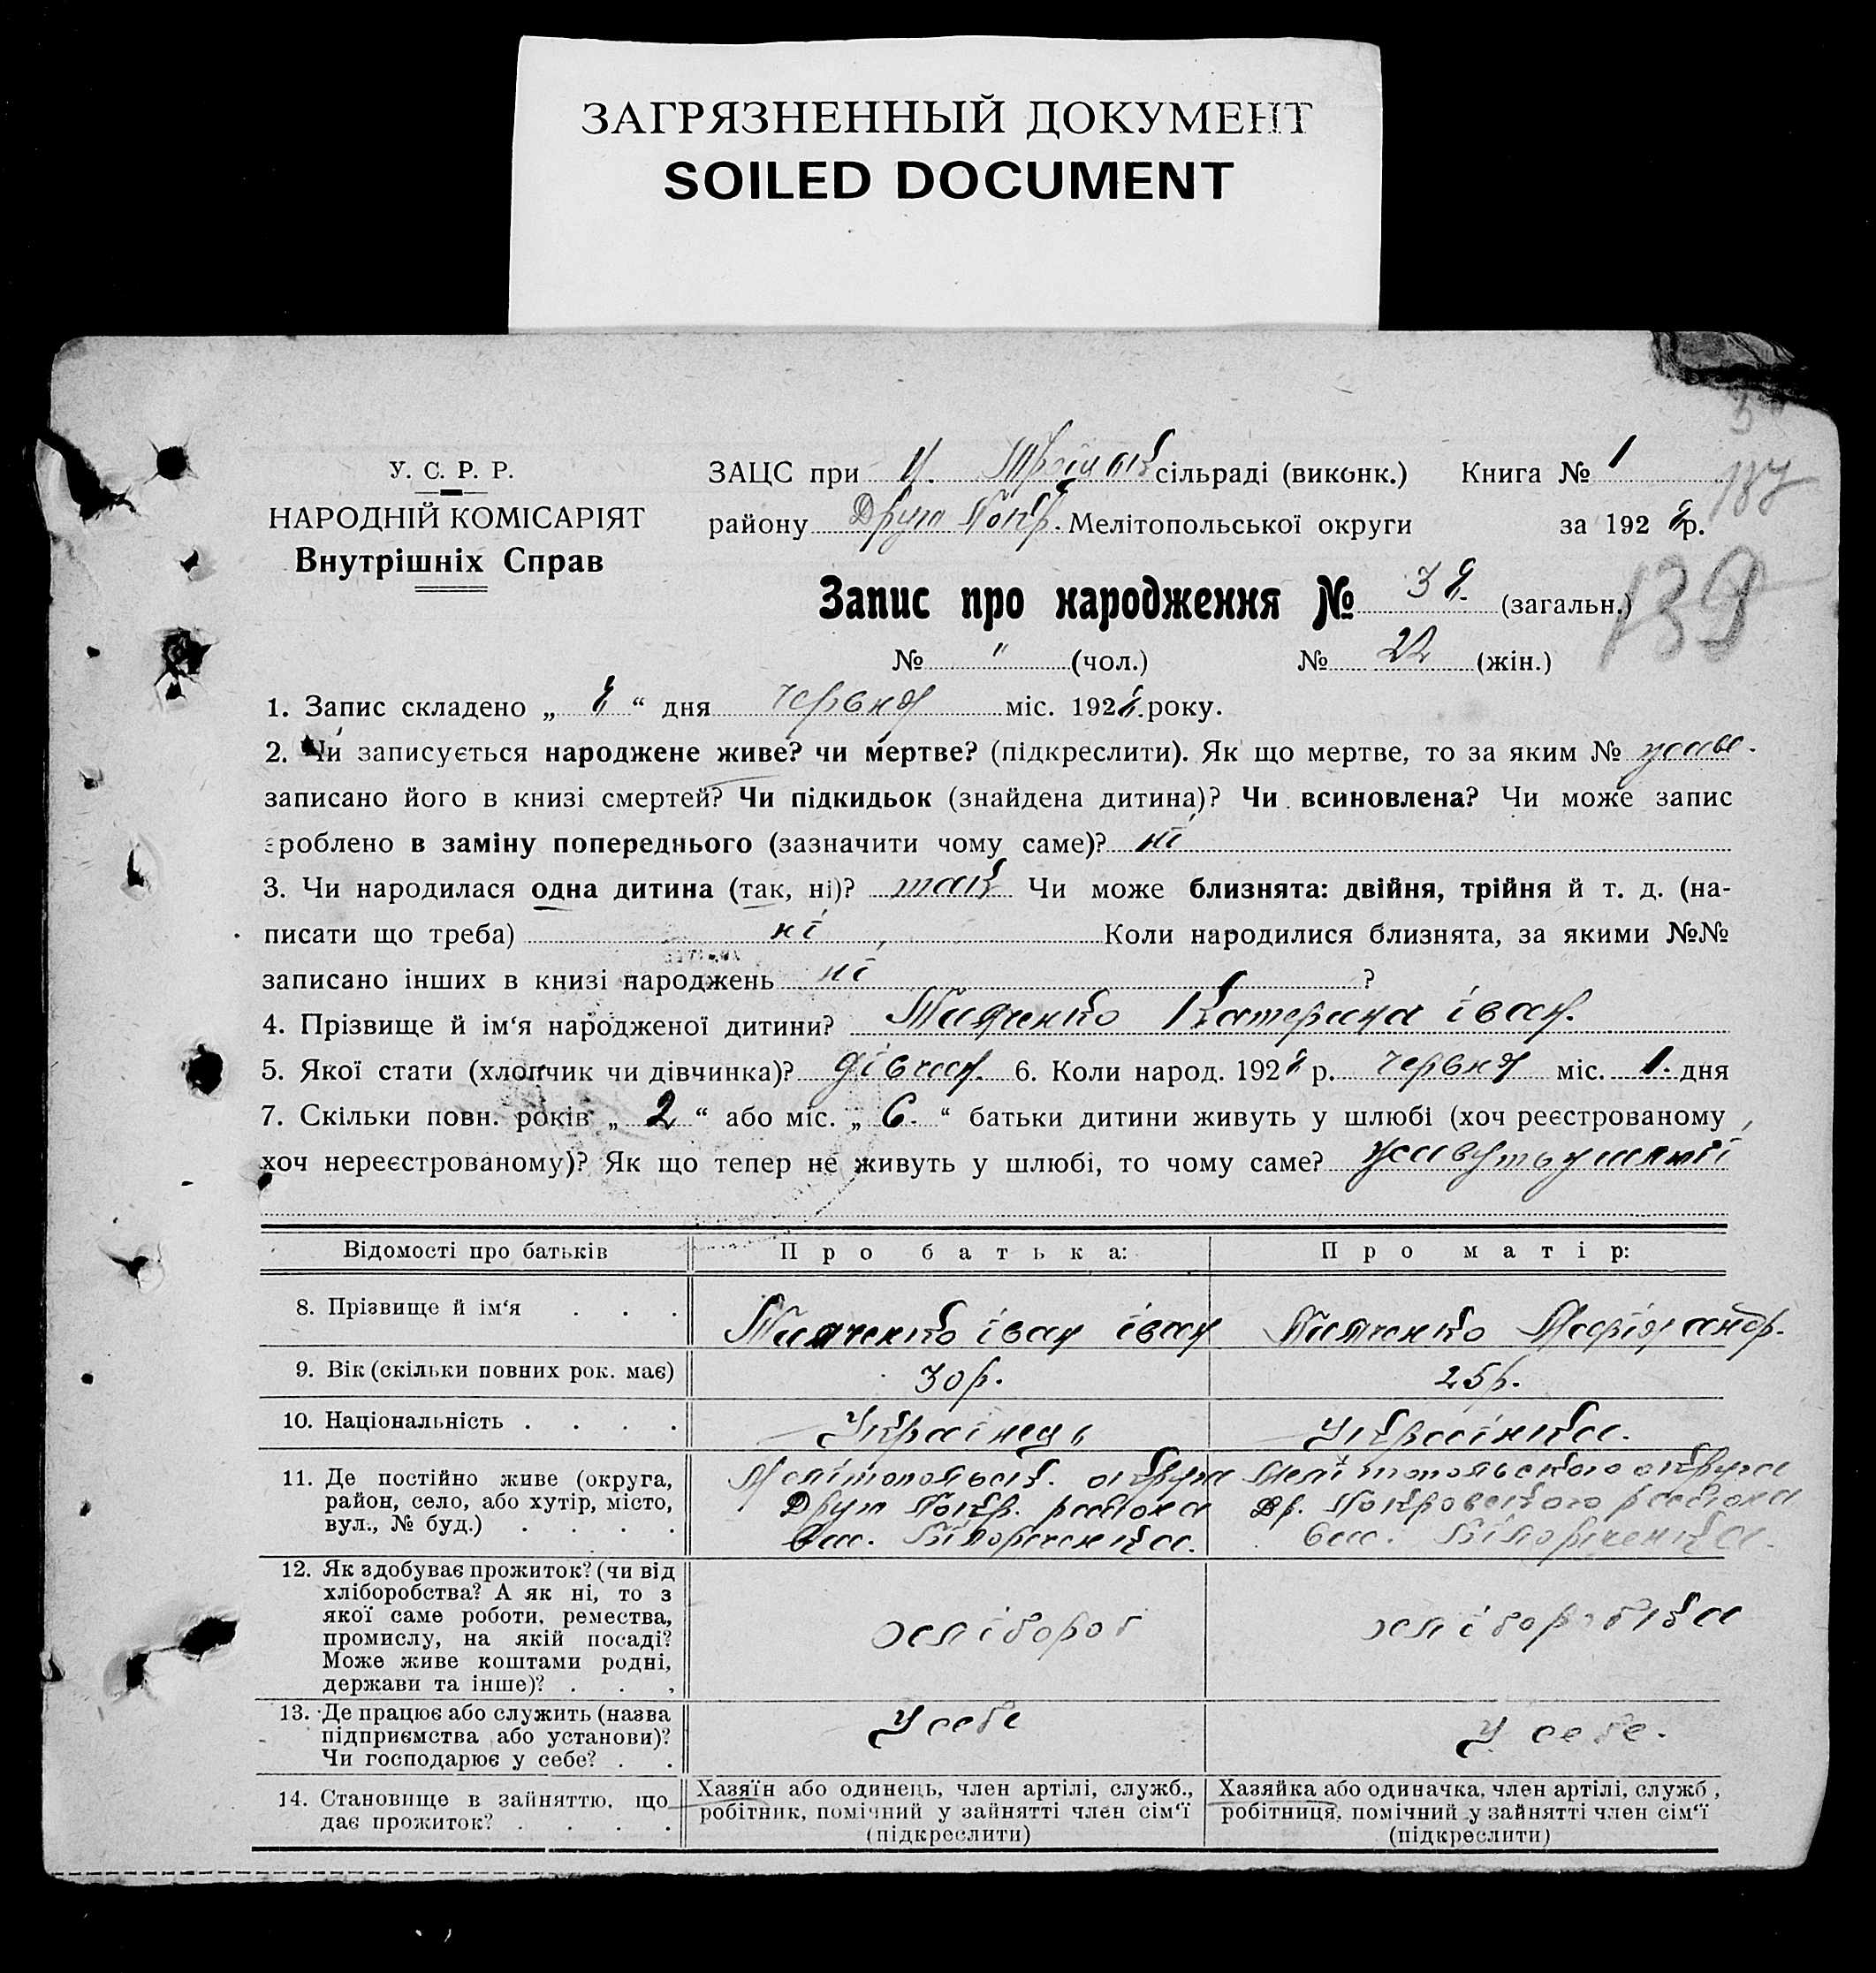 ЗАГРЯЗНЕННЫЙ ДОКУМЕНТ
SOILED DOCUMENT
У. С. Р. Р.
НАРОДНІЙ КОМІСАРІЯТ
Внутрішніх Справ
ЗАЦС при сільраді (виконк.) Книга № 1
району Друго Покр. Мелітопольської округи за 192 р.
187
139
Запис про народження № (загальн.)
№ " (чол.) № 22 (жін.)
1. Запис складено „ “ дня червня міс. 192 року.
2. Чи записується народжене живе? чи мертве? (підкреслити). Як що мертве, то за яким № живе.
записано його в книзі смертей? Чи підкидьок (знайдена дитина)? Чи всиновлена? Чи може запис
зроблено в заміну попереднього (зазначити чому саме)? ні
3. Чи народилася одна дитина (так, ні)? так Чи може близнята: двійня, трійня й т. д. (на-
писати що треба) ні Коли народилися близнята, за якими №№
записано інших в книзі народжень ні ?
4. Прізвище й ім‘я народженої дитини? Катерина іван.
5. Якої стати (хлопчик чи дівчинка)? дівчин. 6. Коли народ. 192 р. червня міс. 1. дня
7. Скільки повн. років „ 2 “ або міс. „ 6. “ батьки дитини живуть у шлюбі (хоч реєстрованому,
хоч нереєстрованому)? Як що тепер не живуть у шлюбі, то чому саме? живуть у
Відомості про батьків Про батька: Про матір:
8. Прізвище й ім‘я . . . іван іван Марія андр.
9. Вік (скільки повних рок. має) 30 р. 25 р.
10. Національність . . . . Українець Українка.
11. Де постійно живе (округа, Мелітопольськ. округа Мелітопольського округа
район, село, або хутір, місто, Друго Покр. району Др. Покровского району
вул., № буд.) . . . . Вас. Білоріченка. Вас. Білоріченка.
12. Як здобуває прожиток? (чи від
хліборобства? А як ні, то з
якої саме роботи, ремества, хлібороб хліборобка
промислу, на якій посаді?
Може живе коштами родні,
держави та інше)? . . .
13. Де працює або служить (назва у себе у себе.
підприємства або установи)?
Чи господарює у себе? . .
14. Становище в зайняттю, що Хазяїн або одинець, член артілі, служб., Хазяйка або одиначка, член артілі, служб,
дає прожиток? . . . . робітник, помічний у зайнятті член сім‘ї робітниця, помічний у зайнятті член сім‘ї
(підкреслити) (підкреслити)